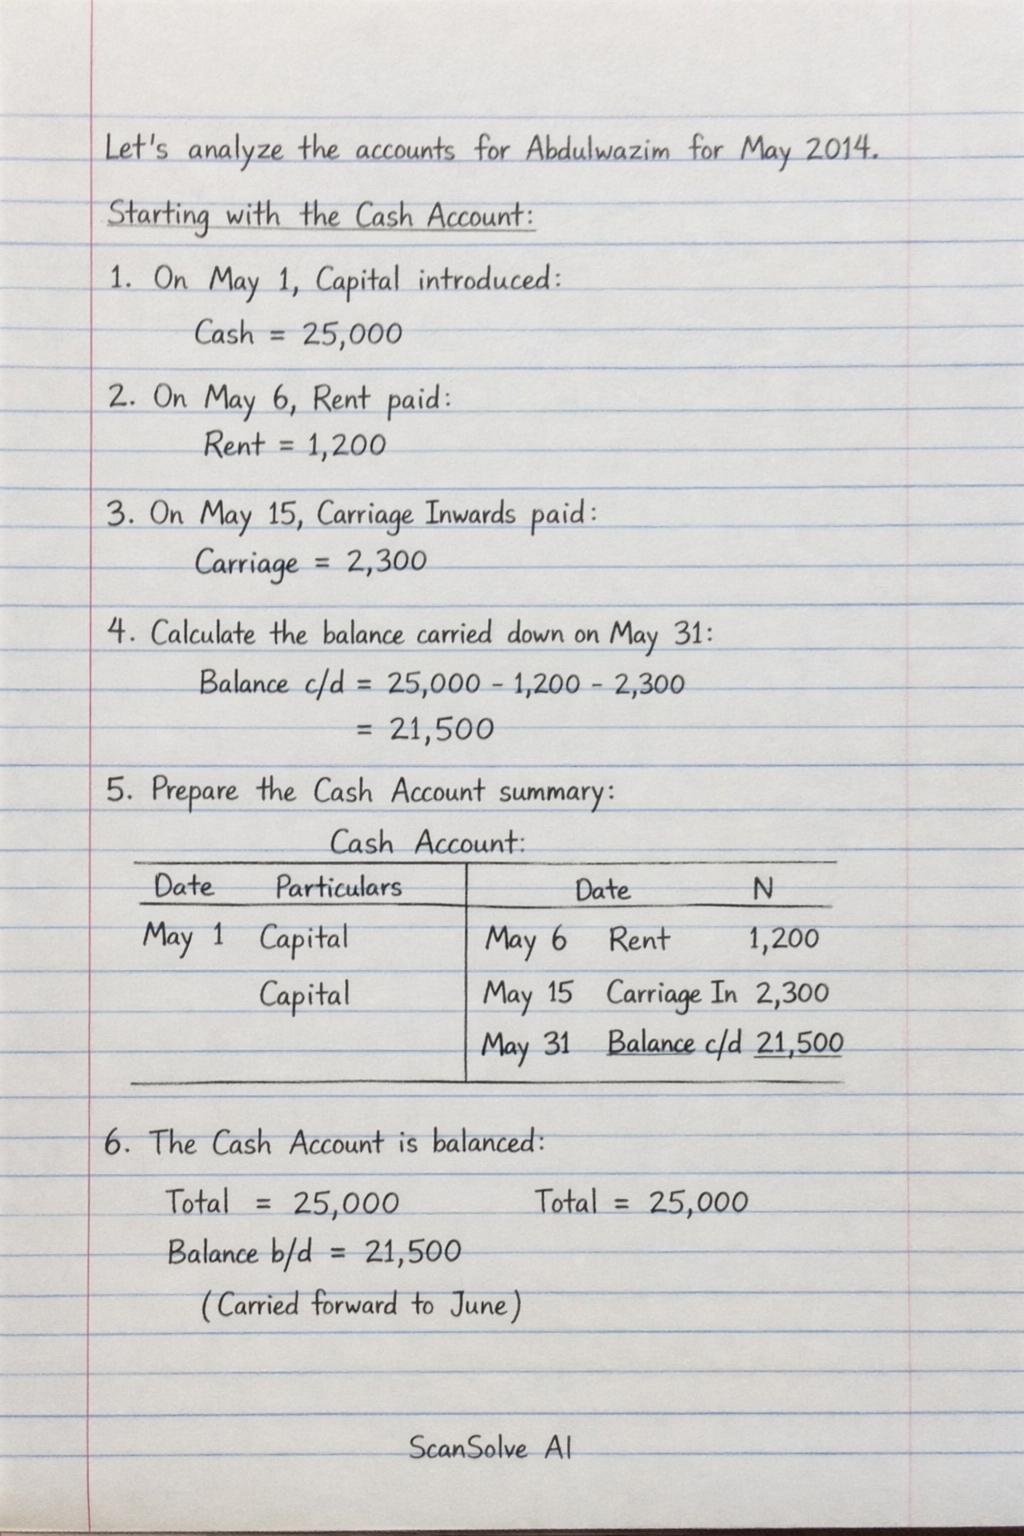 Let's analyze the accounts for Abdulwazim for May 2014.
Starting with the Cash Account:
1. On May 1, Capital introduced:
Cash = 25,000
2. On May 6, Rent paid:
Rent = 1,200
3. On May 15, Carriage Inwards paid:
Carriage = 2,300
4. Calculate the balance carried down on May 31:
Balance c/d = 25,000 - 1,200 - 2,300
= 21,500
5. Prepare the Cash Account summary:
Cash Account:
Date Particulars Date N
May 1 Capital May 6 Rent 1,200
Capital May 15 Carriage In 2,300
May 31 Balance c/d 21,500
6. The Cash Account is balanced:
Total = 25,000 Total = 25,000
Balance b/d = 21,500
(Carried forward to June)
ScanSolve AI